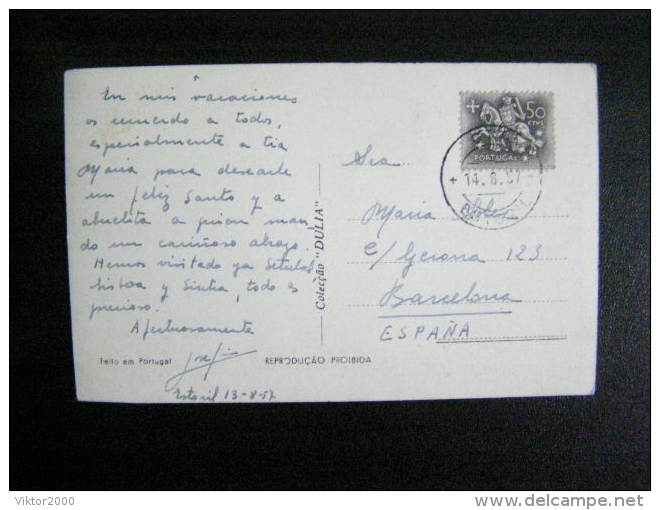 En mis vacaciones
os recuerdo a todos,
especialmente a tia
Maria para desearle
un feliz Santo y a
abuelita a quien man-
do un cariñoso abrazo.
Hemos visitado ya Setubal
Lisboa y Sintra, todo es
precioso.
Afectuosamente
Estoril 13-8-57
Feito em Portugal
REPRODUÇÃO PROIBIDA
Colecção "DÚLIA"
50
CTVS
PORTUGAL
14.8.57
Sra
Maria
c/ Gerona 123
Barcelona
ESPAÑA
Viktor2000
delcampe.net